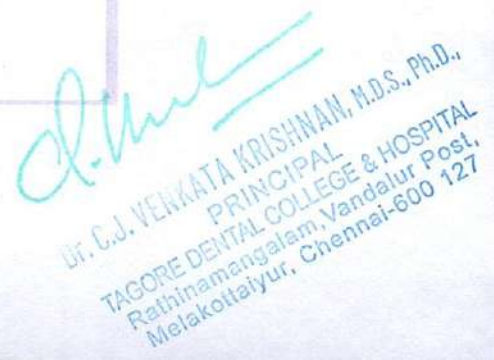 Dr. C.J. VENKATA KRISHNAN, M.D.S., Ph.D.,
PRINCIPAL
TAGORE DENTAL COLLEGE & HOSPITAL
Rathinamangalam, Vandalur Post,
Melakottaiyur, Chennai-600 127